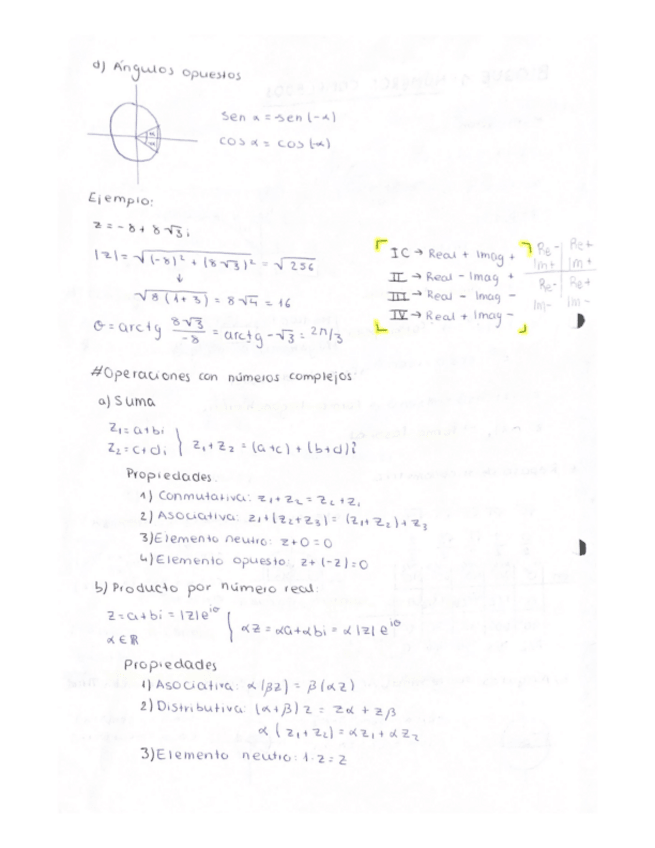 d) Ángulos opuestos
sen α = -sen (-α)
cos α = cos (-α)
Ejemplo:
z = -8 + 8√3 i
|z| = √((-8)² + (8√3)²) = √256
↓
√8(1+3) = 8√4 = 16
θ = arctg 8√3/-8 = arctg -√3 = 2π/3
IC → Real + Imag +
II → Real - Imag +
III → Real - Imag -
IV → Real + Imag -
Re- Re+
Im+ Im+
Re- Re+
Im- Im-
#Operaciones con números complejos:
a) Suma
z₁ = a+bi
z₂ = c+di } z₁+z₂ = (a+c) + (b+d)i
Propiedades:
1) Conmutativa: z₁+z₂ = z₂+z₁
2) Asociativa: z₁+(z₂+z₃) = (z₁+z₂)+z₃
3) Elemento neutro: z+0=0
4) Elemento opuesto: z+(-z)=0
b) Producto por número real:
z = a+bi = |z|e^iθ
α ∈ ℝ } αz = αa+αbi = α|z|e^iθ
Propiedades
1) Asociativa: α(βz) = β(αz)
2) Distributiva: (α+β)z = zα + zβ
α(z₁+z₂) = αz₁+αz₂
3) Elemento neutro: 1·z=z